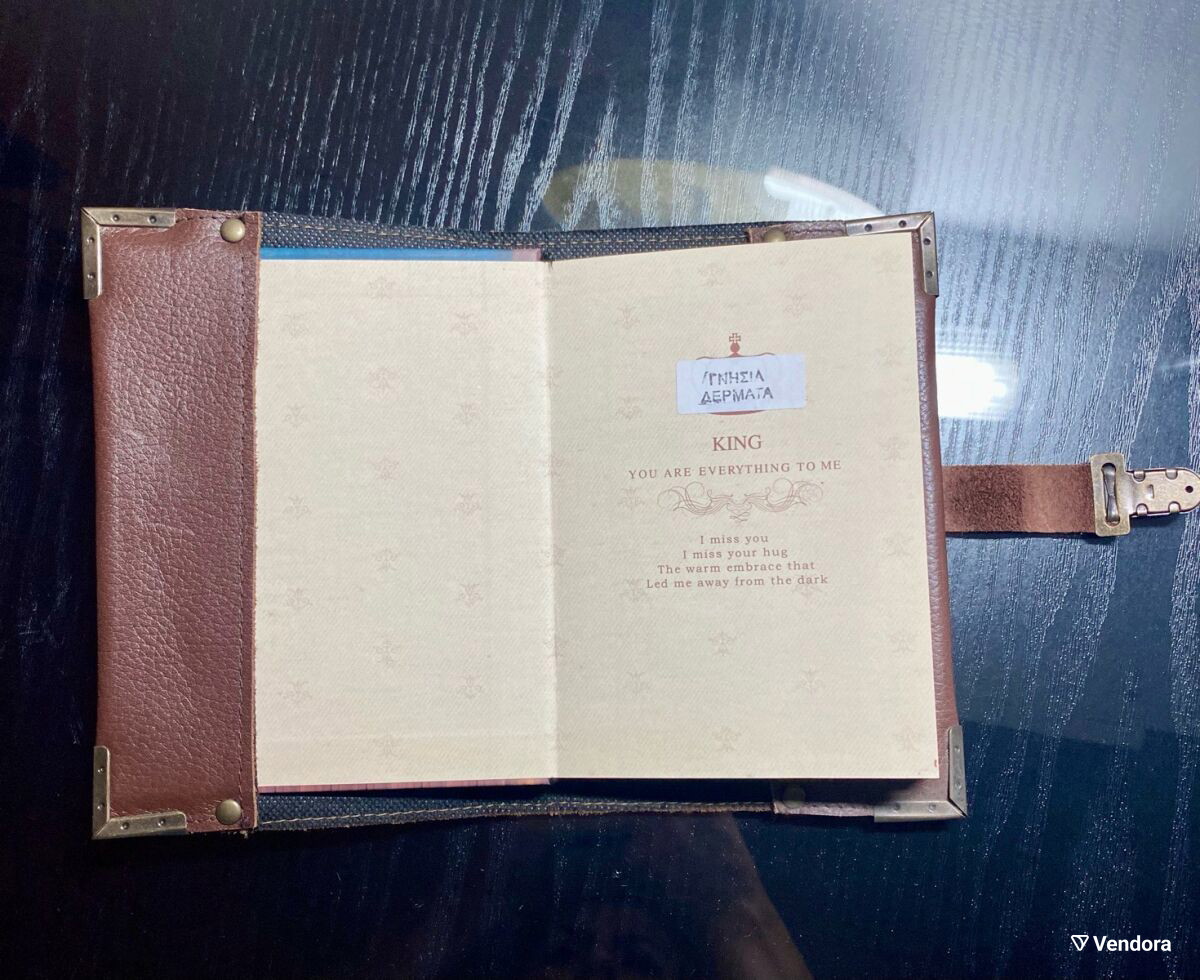 ΓΝΗΣΙΑ
ΔΕΡΜΑΤΑ
KING
YOU ARE EVERYTHING TO ME
I miss you
I miss your hug
The warm embrace that
Led me away from the dark
Vendora